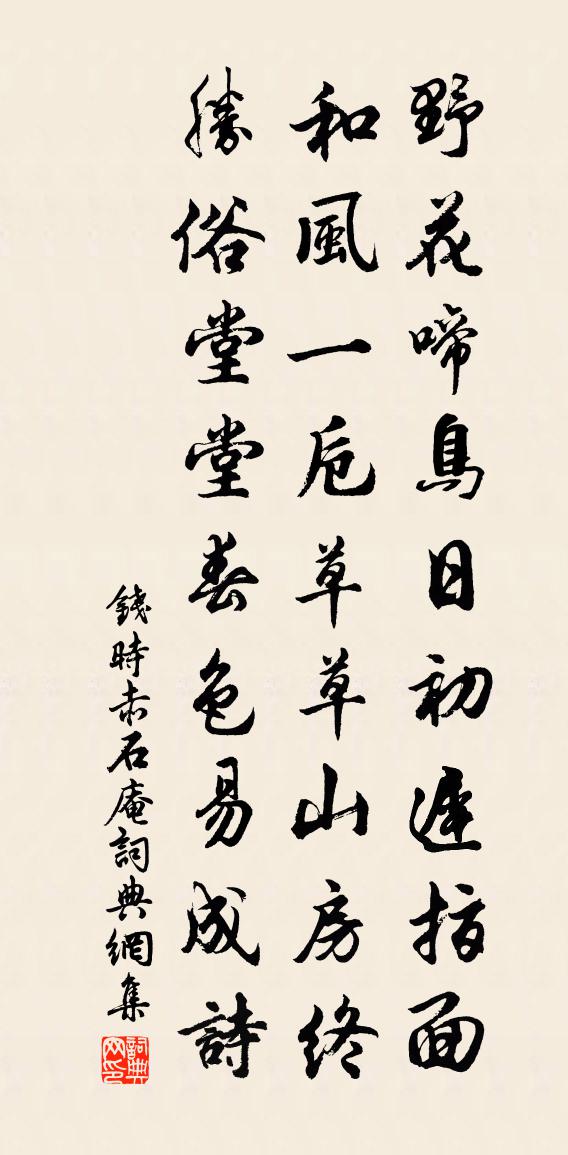 野花啼鳥日初遲拂面
和風一卮草草山房終
勝俗堂堂春色易成詩
錢時赤石庵詞典網集
詞典网印